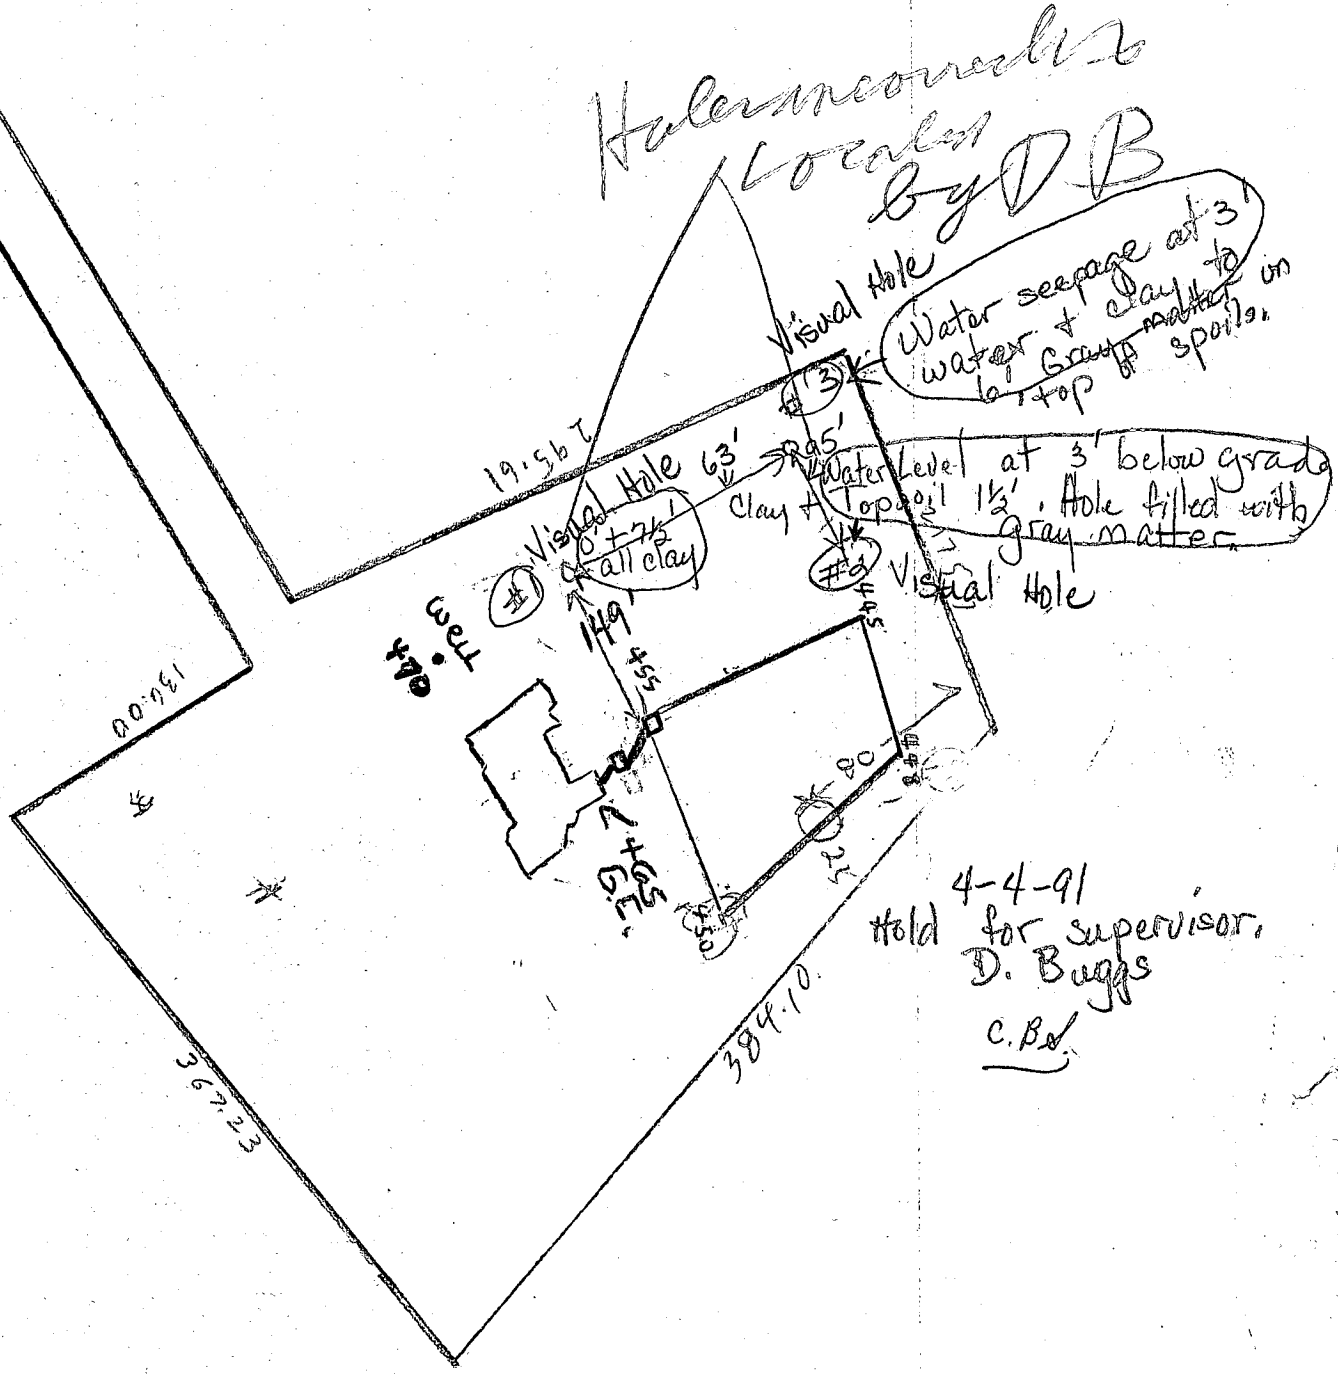 Holes incorrectly
Located
by DB
Visual Hole
#3
Water seepage at 3'
water + clay to
Gray matter on
top of spoils.
195.61
Visual Hole
63'
295'
Water Level at 3' below grade
Clay + Topsoil 1½'. Hole filled with
gray matter.
0' + 7½'
all clay
#1
#2
Visual Hole
149'
Well
470
455
445
448
80
25
450
+65
G.E.
130.00
367.23
384.10
4-4-91
Hold for supervisor.
D. Buggs